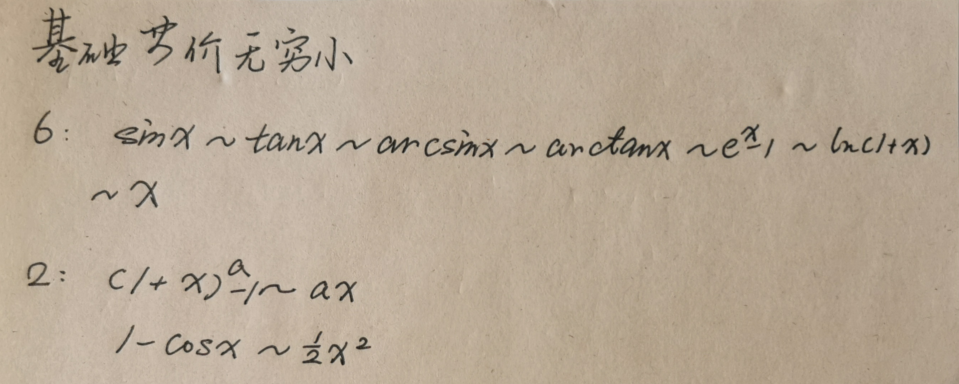 基础等价无穷小
6: sinx ~ tanx ~ arcsinx ~ arctanx ~ eˣ-1 ~ ln(1+x)
~ x
2: (1+x)ᵃ-1 ~ ax
1-cosx ~ ½x²